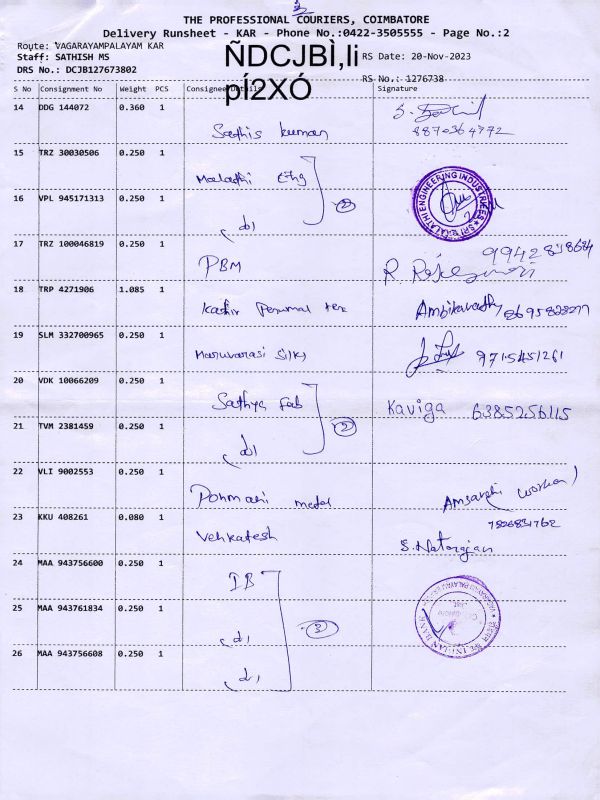 THE PROFESSIONAL COURIERS, COIMBATORE
Delivery Runsheet - KAR - Phone No.:0422-3505555 - Page No.:2
Route: VAGARAYAMPALAYAM KAR
Staff: SATHISH MS
DRS No.: DCJB127673802
ÑDCJBÌ,li
pÍ2XÓ
RS Date: 20-Nov-2023
RS No.: 1276738
S No Consignment No Weight PCS Consignee Details Signature
14 DDG 144072 0.360 1
Sathis kuman
8870364772
15 TRZ 30030506 0.250 1
Malathi Eng
16 VPL 945171313 0.250 1
(2)
SRI MALATHI ENGINEERING INDUSTRIES
17 TRZ 100046819 0.250 1
PBM
R Rajeswari
18 TRP 4271906 1.085 1
Kathir Perumal tex
8695828277
19 SLM 332700965 0.250 1
Marwarasi Silks
9715451261
20 VDK 10066209 0.250 1
Sathya fab
Kaviga 6385256115
21 TVM 2381459 0.250 1
(2)
22 VLI 9002553 0.250 1
Ponmani metal
23 KKU 408261 0.080 1
Venkatesh
S. Natarajan
24 MAA 943756600 0.250 1
IB
25 MAA 943761834 0.250 1
(3)
INDIAN BANK
26 MAA 943756608 0.250 1